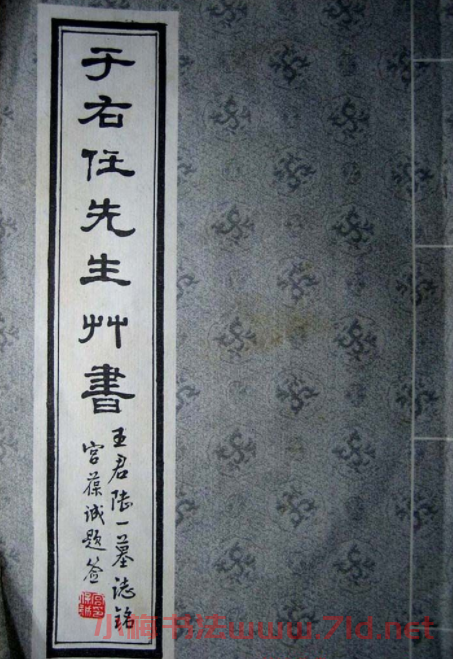 于右任先生艸書
王君陆一墓誌銘
宫葆诚题签
小楠书法www.71d.net